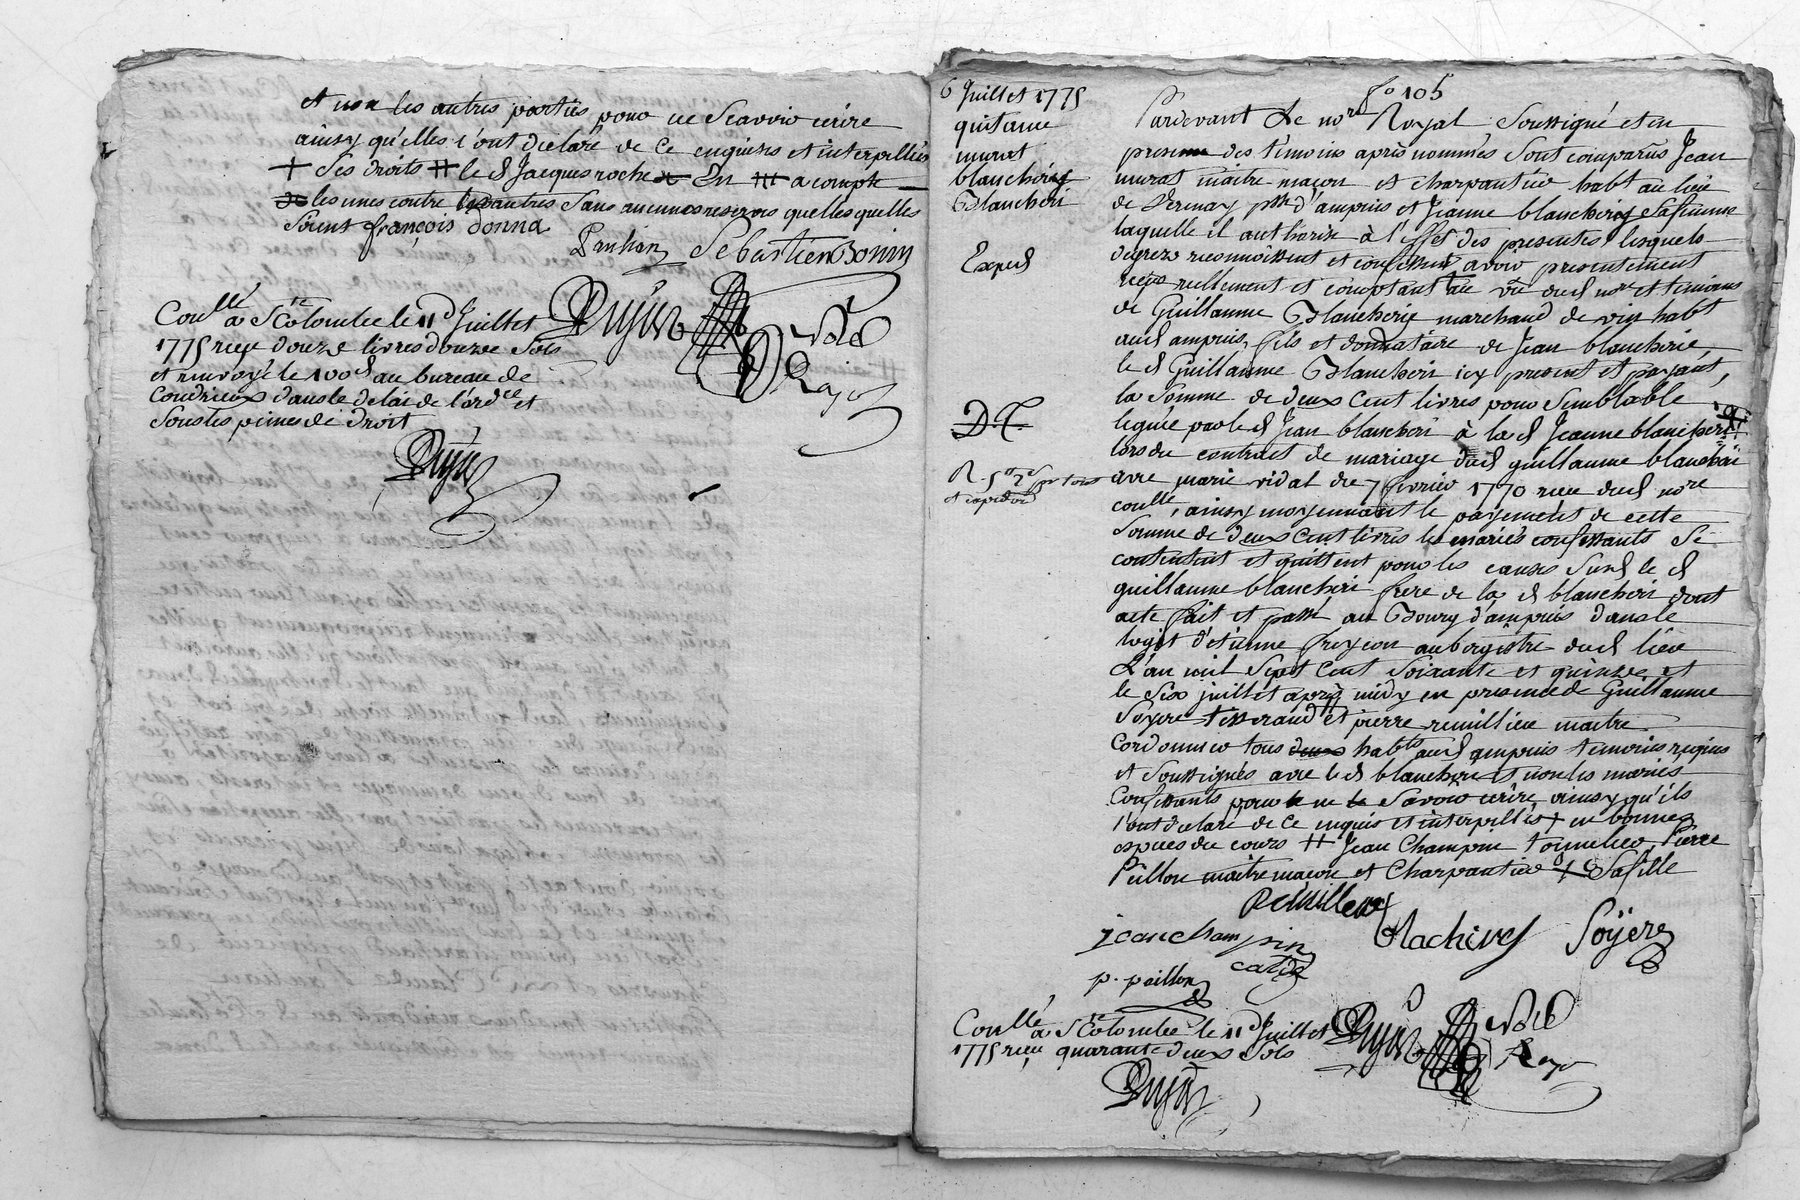 et non les autres parties pour ne Scavoir écrire
ainsy qu'elles l'ont declaré de ce enquises et interpellées
+ Ses droits ++ le d Jacques roche En +++ acompte
les unes contre les autres Sans aucunes reserves quelles quelles
Soient françois donna
Sebastien Bonin
Dujas Not
Royal
Conllé a Ste Colombe le 11 Juillet
1775 reçu douze livres douze Sols
et renvoyé le 100d au bureau de
Condrieux dans le delai de l'ordce et
Sous les peines de droit
Dujas
6 Juillet 1775
quitance
murat
blancherie
a Blancheri
Exped
D. C.
fo 105
Pardevant Le nore Royal Soussigné et en
presence des temoins après nommés Sont comparus Jean
murat maitre maçon et charpantier habt au lieu
de Verenay psse d'ampuis et Jeanne blancherie Sa femme
laquelle il authorise à l'effet des presentes lesquels
degrez reconnoissent et confessent avoir presentement
reçu reellement et comptant au vû dud nore et temoins
de Guillaume Blancherie marchand de vin habt
aud ampuis, fils et donnataire de Jean blancherie,
le d Guillaume Blancheri icy present et payant,
la Somme de deux cent livres pour Semblable
leguée par led Jean blancheri à lad Jeanne blancheri
lors du contract de mariage dud guillaume blancheri
avec marie vidal du 7 fevrier 1770 reçu dud nore
conllé, ainsy moyennant le payement de cette
Somme de deux cent livres les mariés confessants Se
contentent et quittent pour les causes Susd le d
guillaume blancheri frere de la d blancheri dont
acte fait et passé au Bourg d'ampuis dans le
logis d'etienne freyion aubergistre dud lieu
L'an mil Sept Cent Soixante et quinze et
le Six juillet après midy en presence de Guillaume
Soyere tisserand et pierre remillieu maitre
Cordonnier tous habts aud ampuis temoins requis
et Soussignés avec led blancheri et non les mariés
Confessants pour ne Savoir écrire, ainsy qu'ils
l'ont declaré de ce enquis et interpellés + en bonnes
espèces du cours ++ Jean Champin tonnelier, Pierre
Paillon maitre maçon et Charpantier Sa fille
Remillieux
jean champin
cadet
Soÿere
p. paillon
Conllé a Ste Colombe le 11 Juillet
1775 reçu quarante deux Sols
Dujas Not
Royal
Dujas